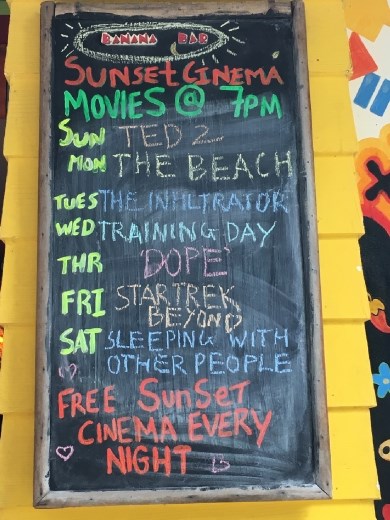 BANANA BAR
SUNSET CINEMA
MOVIES @ 7PM
SUN TED 2
MON THE BEACH
TUES THE INFILTRATOR
WED TRAINING DAY
THR 'DOPE'
FRI STAR TREK
BEYOND
SAT SLEEPING WITH
OTHER PEOPLE
FREE SunSET
CINEMA EVERY
NIGHT